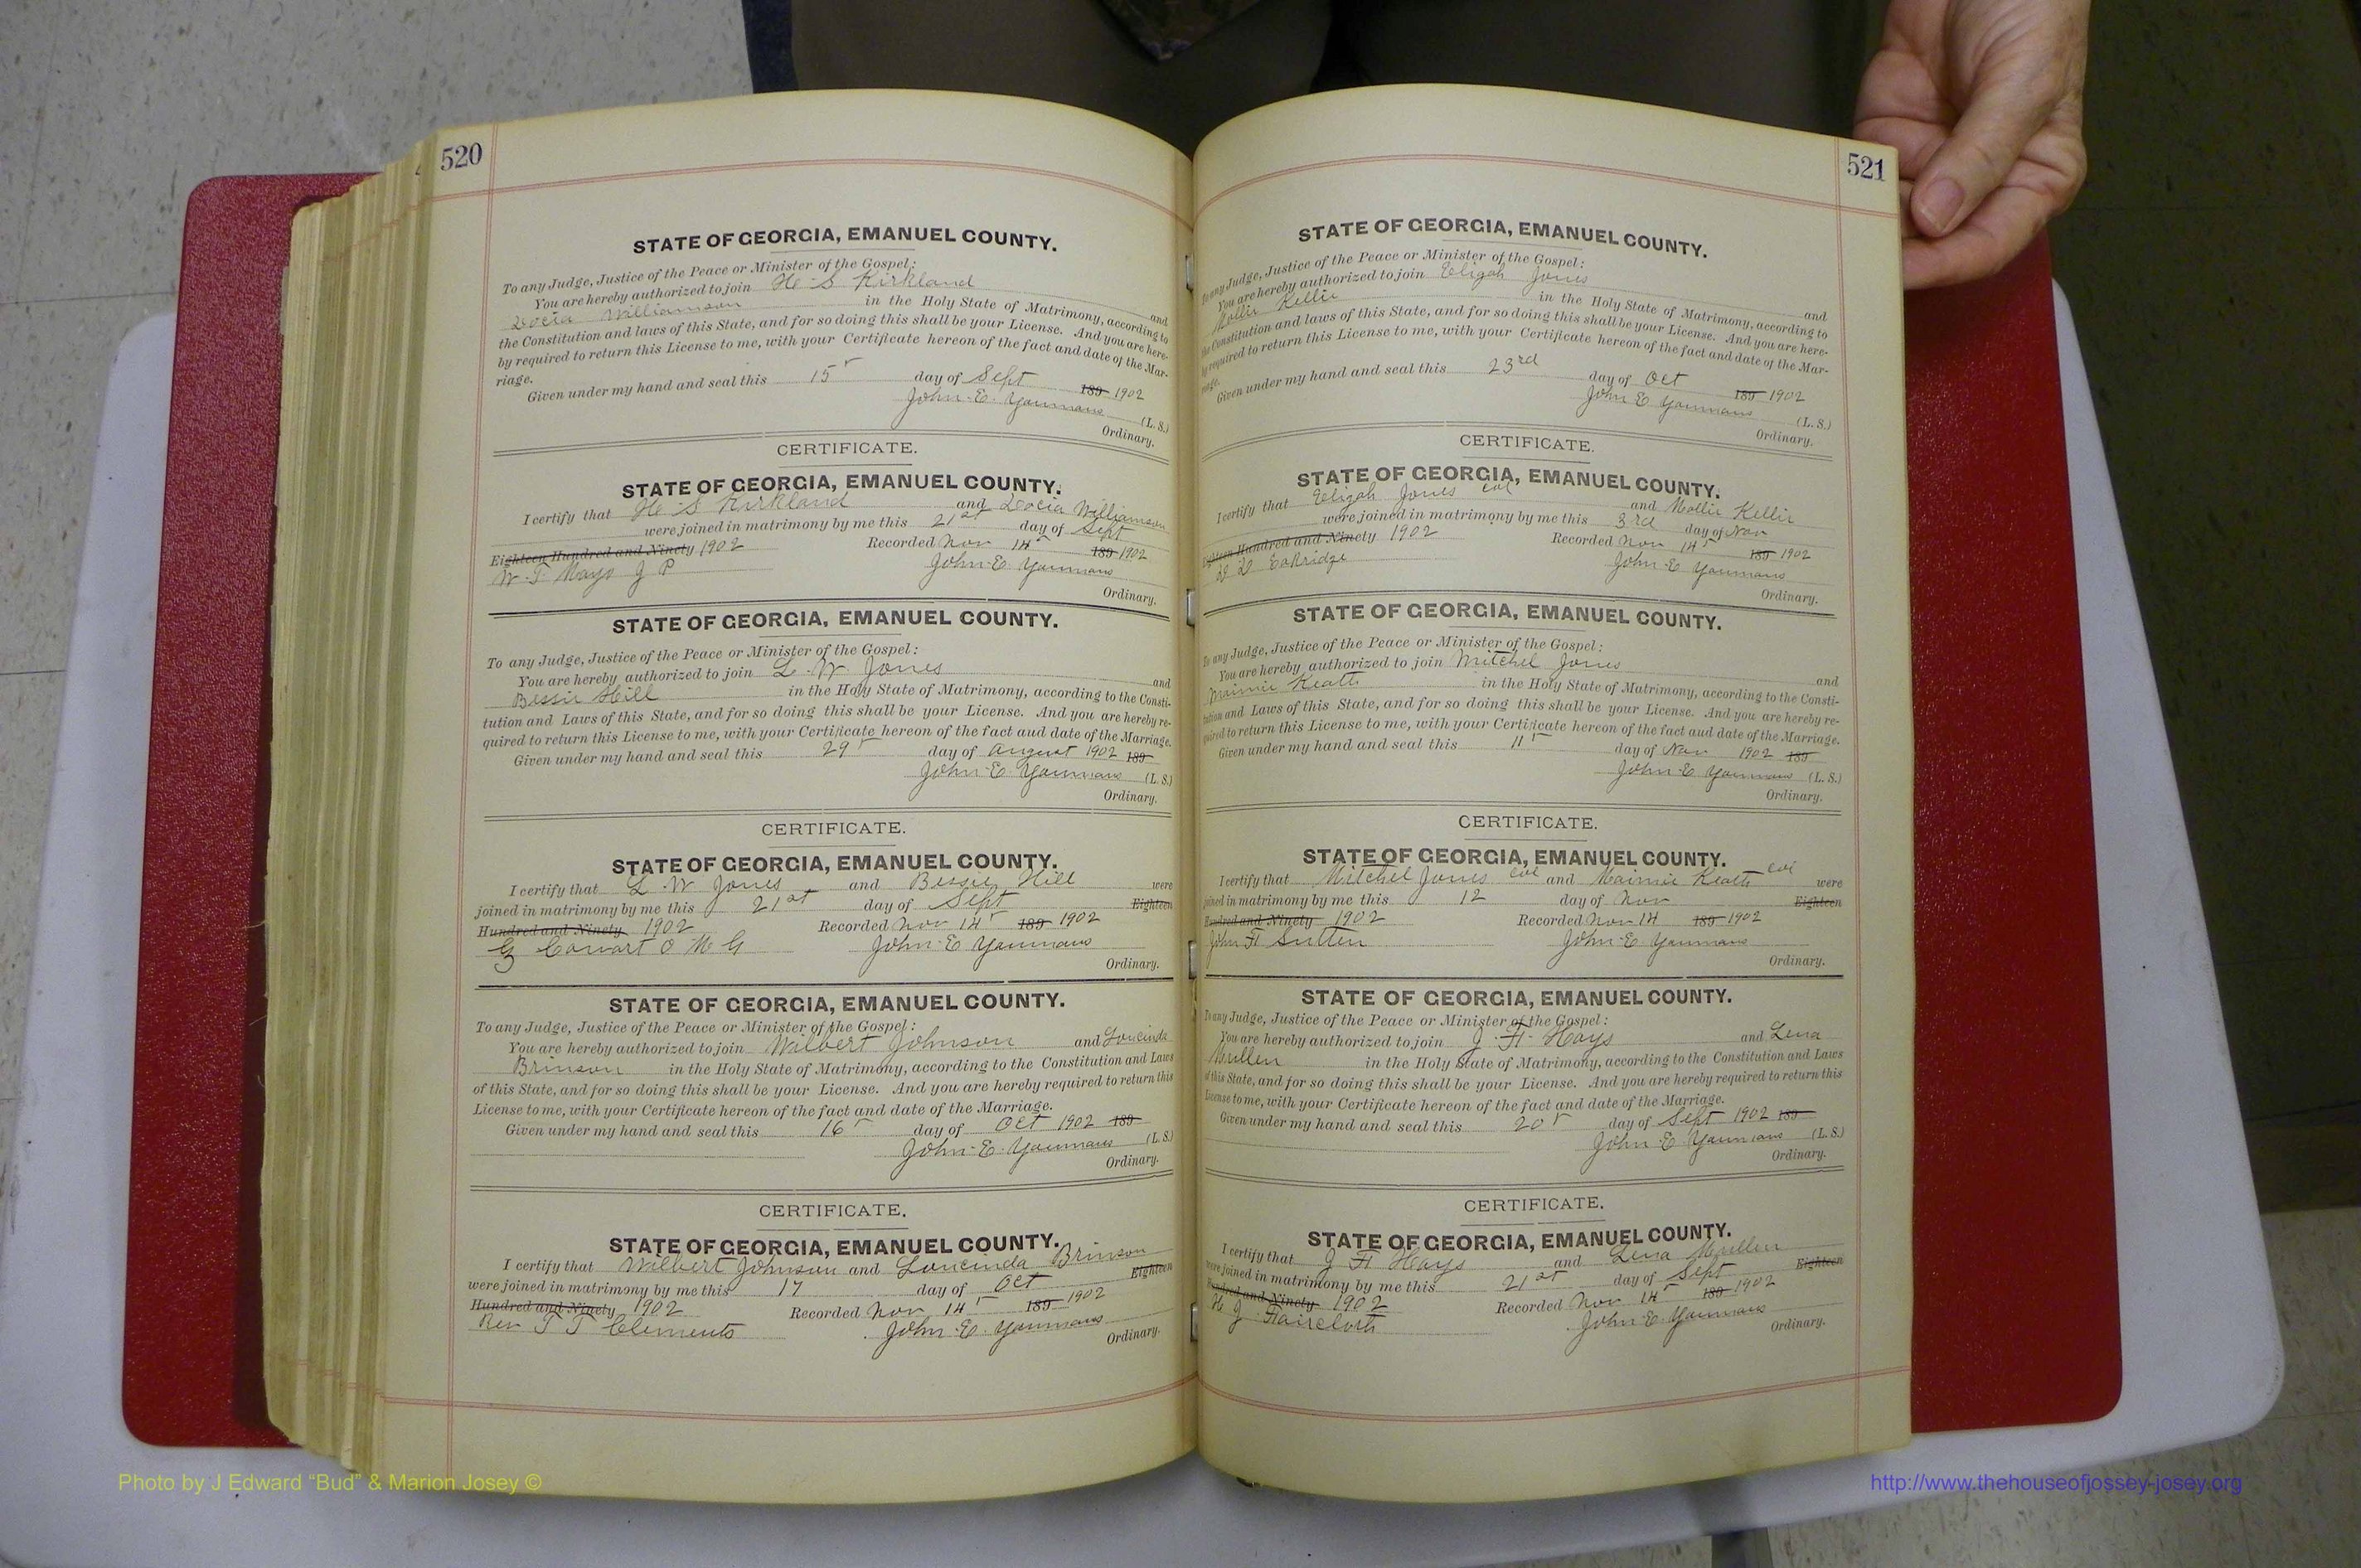 520
STATE OF GEORGIA, EMANUEL COUNTY.
To any Judge, Justice of the Peace or Minister of the Gospel:
You are hereby authorized to join H S Kirkland and
Williamson in the Holy State of Matrimony, according to
the Constitution and laws of this State, and for so doing this shall be your License. And you are here-
by required to return this License to me, with your Certificate hereon of the fact and date of the Mar-
riage.
Given under my hand and seal this 15 day of Sept 189 1902
John E. Youmans (L. S.)
Ordinary.
CERTIFICATE.
STATE OF GEORGIA, EMANUEL COUNTY.
I certify that H S Kirkland and Williamson
were joined in matrimony by me this 21st day of Sept
Eighteen Hundred and Ninety 1902 Recorded Nov 14 189 1902
W. T. Mays J P John E. Youmans
Ordinary.
STATE OF GEORGIA, EMANUEL COUNTY.
To any Judge, Justice of the Peace or Minister of the Gospel:
You are hereby authorized to join L. W Jones and
Bessie Hill in the Holy State of Matrimony, according to the Consti-
tution and Laws of this State, and for so doing this shall be your License. And you are hereby re-
quired to return this License to me, with your Certificate hereon of the fact aud date of the Marriage.
Given under my hand and seal this 29 day of August 1902 189
John E Youmans (L. S.)
Ordinary.
CERTIFICATE.
STATE OF GEORGIA, EMANUEL COUNTY.
I certify that L. W Jones and Bessie Hill were
joined in matrimony by me this 21st day of Sept Eighteen
Hundred and Ninety 1902 Recorded Nov 14 189 1902
G Cowart O M G John E Youmans
Ordinary.
STATE OF GEORGIA, EMANUEL COUNTY.
To any Judge, Justice of the Peace or Minister of the Gospel:
You are hereby authorized to join Wilbert Johnson and Loucinda
Brinson in the Holy State of Matrimony, according to the Constitution and Laws
of this State, and for so doing this shall be your License. And you are hereby required to return this
License to me, with your Certificate hereon of the fact and date of the Marriage.
Given under my hand and seal this 16 day of Oct 1902 189
John E. Youmans (L. S.)
Ordinary.
CERTIFICATE.
STATE OF GEORGIA, EMANUEL COUNTY.
I certify that Wilbert Johnson and Loucinda Brinson
were joined in matrimony by me this 17 day of Oct Eighteen
Hundred and Ninety 1902 Recorded Nov 14 189 1902
Rev T T Clements John E. Youmans
Ordinary.
521
STATE OF GEORGIA, EMANUEL COUNTY.
To any Judge, Justice of the Peace or Minister of the Gospel:
You are hereby authorized to join Eligah Jones and
Mollie Kellie in the Holy State of Matrimony, according to
the Constitution and laws of this State, and for so doing this shall be your License. And you are here-
by required to return this License to me, with your Certificate hereon of the fact and date of the Mar-
riage.
Given under my hand and seal this 23rd day of Oct 189 1902
John E Youmans (L. S.)
Ordinary.
CERTIFICATE.
STATE OF GEORGIA, EMANUEL COUNTY.
I certify that Eligah Jones col and Mollie Kellie
were joined in matrimony by me this 3rd day of Nov
Eighteen Hundred and Ninety 1902 Recorded Nov 14 189 1902
Eakridge John E Youmans
Ordinary.
STATE OF GEORGIA, EMANUEL COUNTY.
To any Judge, Justice of the Peace or Minister of the Gospel:
You are hereby authorized to join Mitchel Jones and
Maimie Keatts in the Holy State of Matrimony, according to the Consti-
tution and Laws of this State, and for so doing this shall be your License. And you are hereby re-
quired to return this License to me, with your Certificate hereon of the fact aud date of the Marriage.
Given under my hand and seal this 11 day of Nov 1902 189
John E Youmans (L. S.)
Ordinary.
CERTIFICATE.
STATE OF GEORGIA, EMANUEL COUNTY.
I certify that Mitchel Jones col and Maimie Keatts col were
joined in matrimony by me this 12 day of Nov Eighteen
Hundred and Ninety 1902 Recorded Nov 14 189 1902
John H Sutten John E Youmans
Ordinary.
STATE OF GEORGIA, EMANUEL COUNTY.
To any Judge, Justice of the Peace or Minister of the Gospel:
You are hereby authorized to join J. H. Hays and Lena
Mullen in the Holy State of Matrimony, according to the Constitution and Laws
of this State, and for so doing this shall be your License. And you are hereby required to return this
License to me, with your Certificate hereon of the fact and date of the Marriage.
Given under my hand and seal this 20 day of Sept 1902 189
John E Youmans (L. S.)
Ordinary.
CERTIFICATE.
STATE OF GEORGIA, EMANUEL COUNTY.
I certify that J H Hays and Lena Mullen
were joined in matrimony by me this 21st day of Sept Eighteen
Hundred and Ninety 1902 Recorded Nov 14 189 1902
H J Haircloth John E. Youmans
Ordinary.
Photo by J Edward “Bud” & Marion Josey ©
http://www.thehouseofjossey-josey.org